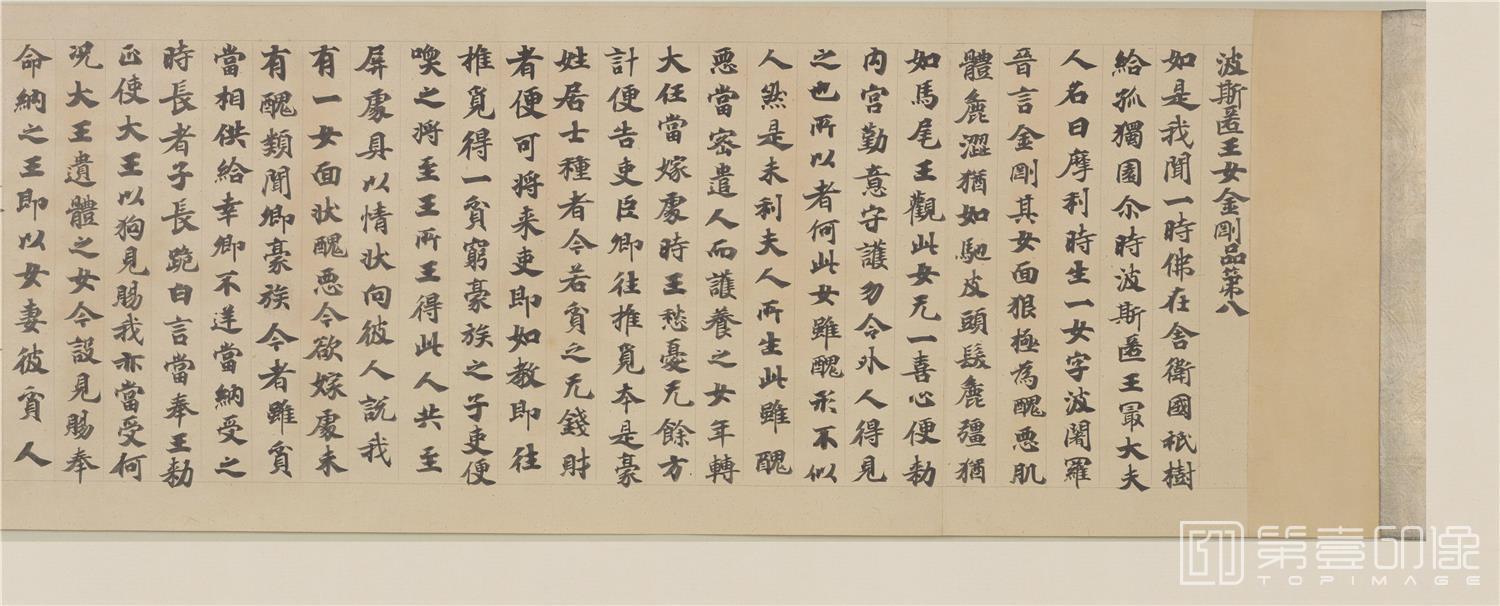 波斯匿王女金剛品第八
如是我聞一時佛在舍衛國祇樹
給孤獨園尒時波斯匿王㝡大夫
人名曰摩利時生一女字波闍羅
晉言金剛其女面狠極為醜惡肌
體麁澀猶如馳皮頭髮麁彊猶
如馬尾王觀此女无一喜心便勑
內宮勤意守護勿令外人得見
之也所以者何此女雖醜形不似
人然是末利夫人所生此雖醜
惡當密遣人而護養之女年轉
大任當嫁處時王愁憂无餘方
計便告吏臣卿往推覓本是豪
姓居士種者今若貧乏无錢財
者便可將來吏即如教即往
推覓得一貧窮豪族之子吏便
喚之將至王所王得此人共至
屏處具以情狀向彼人說我
有一女面狀醜惡今欲嫁處未
有醜類聞卿豪族今者雖貧
當相供給幸卿不逆當納受之
時長者子長跪白言當奉王勑
正使大王以狗見賜我亦當受何
況大王遺體之女今設見賜奉
命納之王即以女妻彼貧人
第壹印像
TOPIMAGE